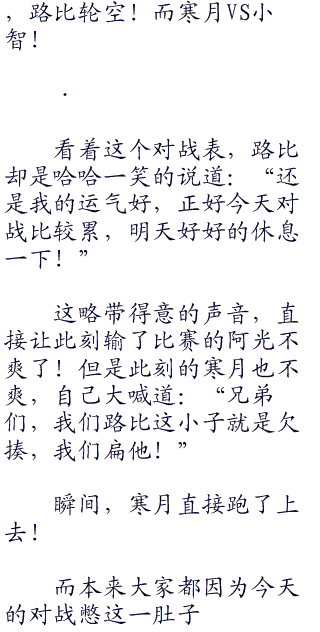 ，路比轮空！而寒月VS小
智！
．
看着这个对战表，路比
却是哈哈一笑的说道：“还
是我的运气好，正好今天对
战比较累，明天好好的休息
一下！”
这略带得意的声音，直
接让此刻输了比赛的阿光不
爽了！但是此刻的寒月也不
爽，自己大喊道：“兄弟
们，我们路比这小子就是欠
揍，我们扁他！”
瞬间，寒月直接跑了上
去！
而本来大家都因为今天
的对战憋这一肚子